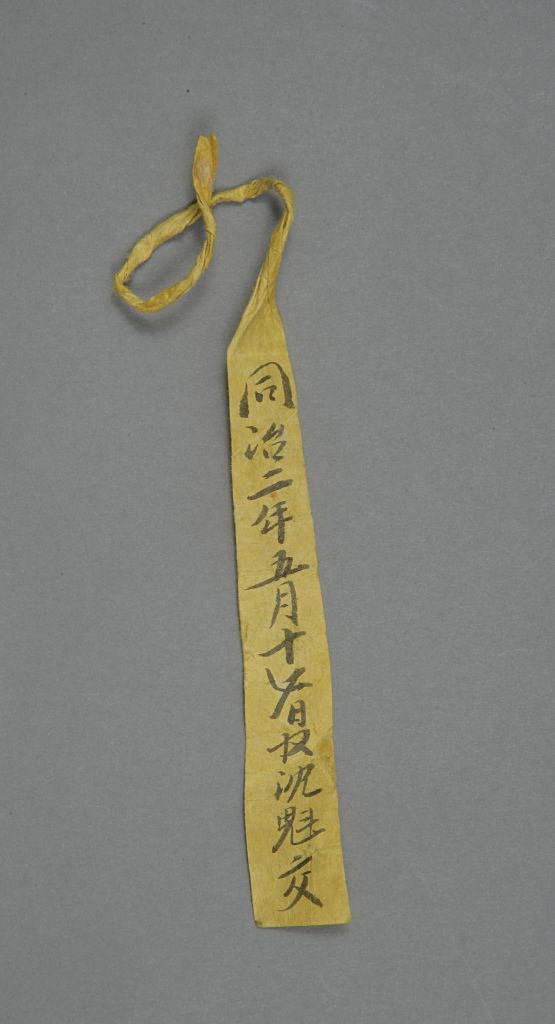 同治二年五月十日收沈魁交